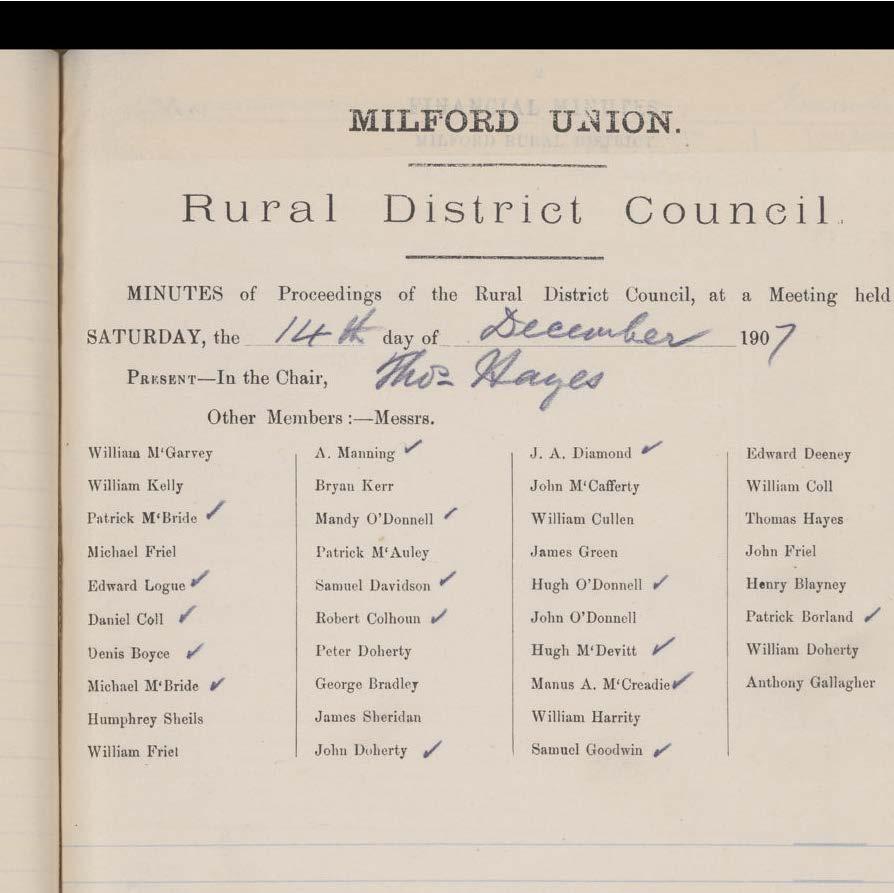 MILFORD UNION.
Rural District Council.
MINUTES of Proceedings of the Rural District Council, at a Meeting held
SATURDAY, the 14th day of December 1907
PRESENT—In the Chair, Thos Hayes
Other Members :—Messrs.
William M‘Garvey
William Kelly
Patrick M‘Bride ✓
Michael Friel
Edward Logue ✓
Daniel Coll ✓
Denis Boyce ✓
Michael M‘Bride ✓
Humphrey Sheils
William Friel
A. Manning ✓
Bryan Kerr
Mandy O’Donnell ✓
Patrick M‘Auley
Samuel Davidson ✓
Robert Colhoun ✓
Peter Doherty
George Bradley
James Sheridan
John Doherty ✓
J. A. Diamond ✓
John M‘Cafferty
William Cullen
James Green
Hugh O’Donnell ✓
John O’Donnell
Hugh M‘Devitt ✓
Manus A. M‘Creadie ✓
William Harrity
Samuel Goodwin ✓
Edward Deeney
William Coll
Thomas Hayes
John Friel
Henry Blayney
Patrick Borland ✓
William Doherty
Anthony Gallagher